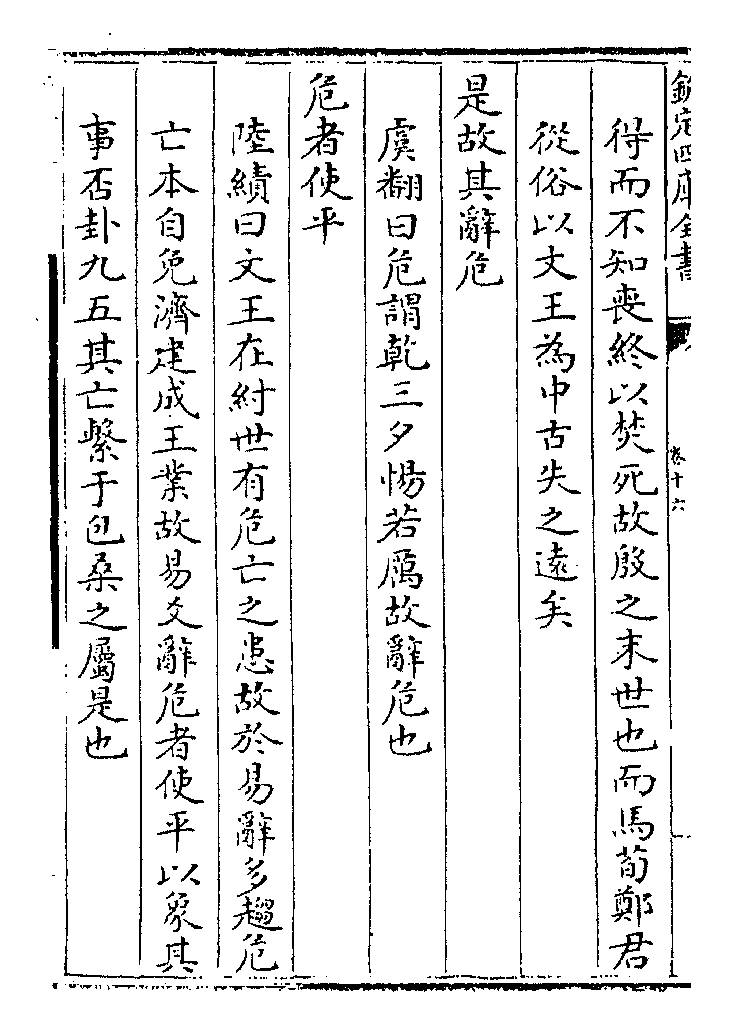 欽定四庫全書
卷十六
得而不知喪終以焚死故殷之末世也而馬荀鄭君
從俗以文王為中古失之遠矣
是故其辭危
虞翻曰危謂乾三夕惕若厲故辭危也
危者使平
陸績曰文王在紂世有危亡之患故於易辭多趨危
亡本自免濟建成王業故易爻辭危者使平以象其
事否卦九五其亡繫于包桑之屬是也